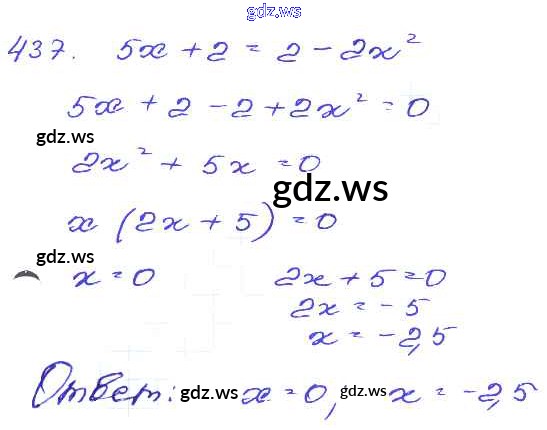 gdz.ws
437. 5x + 2 = 2 - 2x²
5x + 2 - 2 + 2x² = 0
gdz.ws
2x² + 5x = 0
gdz.ws
x (2x + 5) = 0
gdz.ws
x = 0 2x + 5 = 0
2x = - 5
x = - 2,5
Ответ: gdz.ws x = 0, gdz.ws x = - 2,5